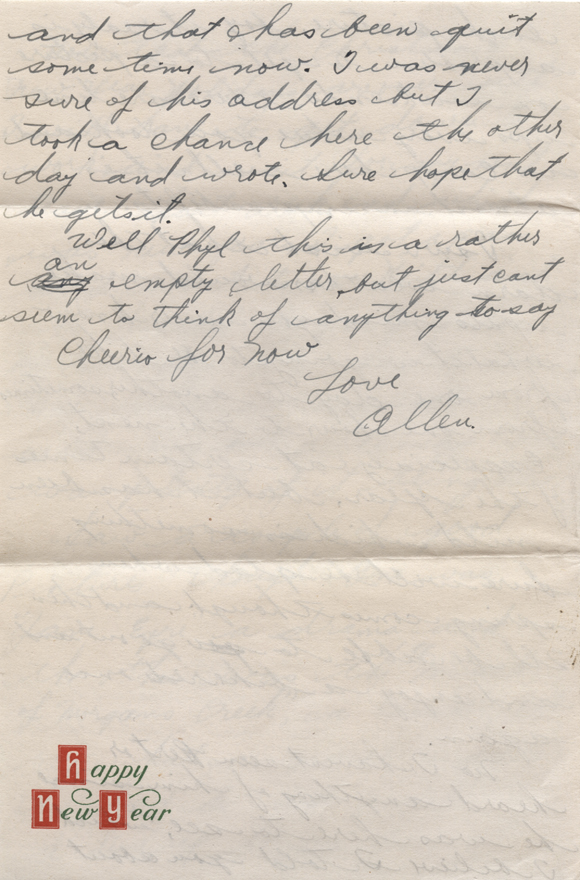 and that has been quit
some time now. I was never
sure of his address but I
took a chance here the other
day and wrote. Sure hope that
he gets it.
Well Phyl this is a rather
an
any empty letter, but just cant
seem to think of anything to say
Cheerio for now
Love
Allen.
Happy
New Year